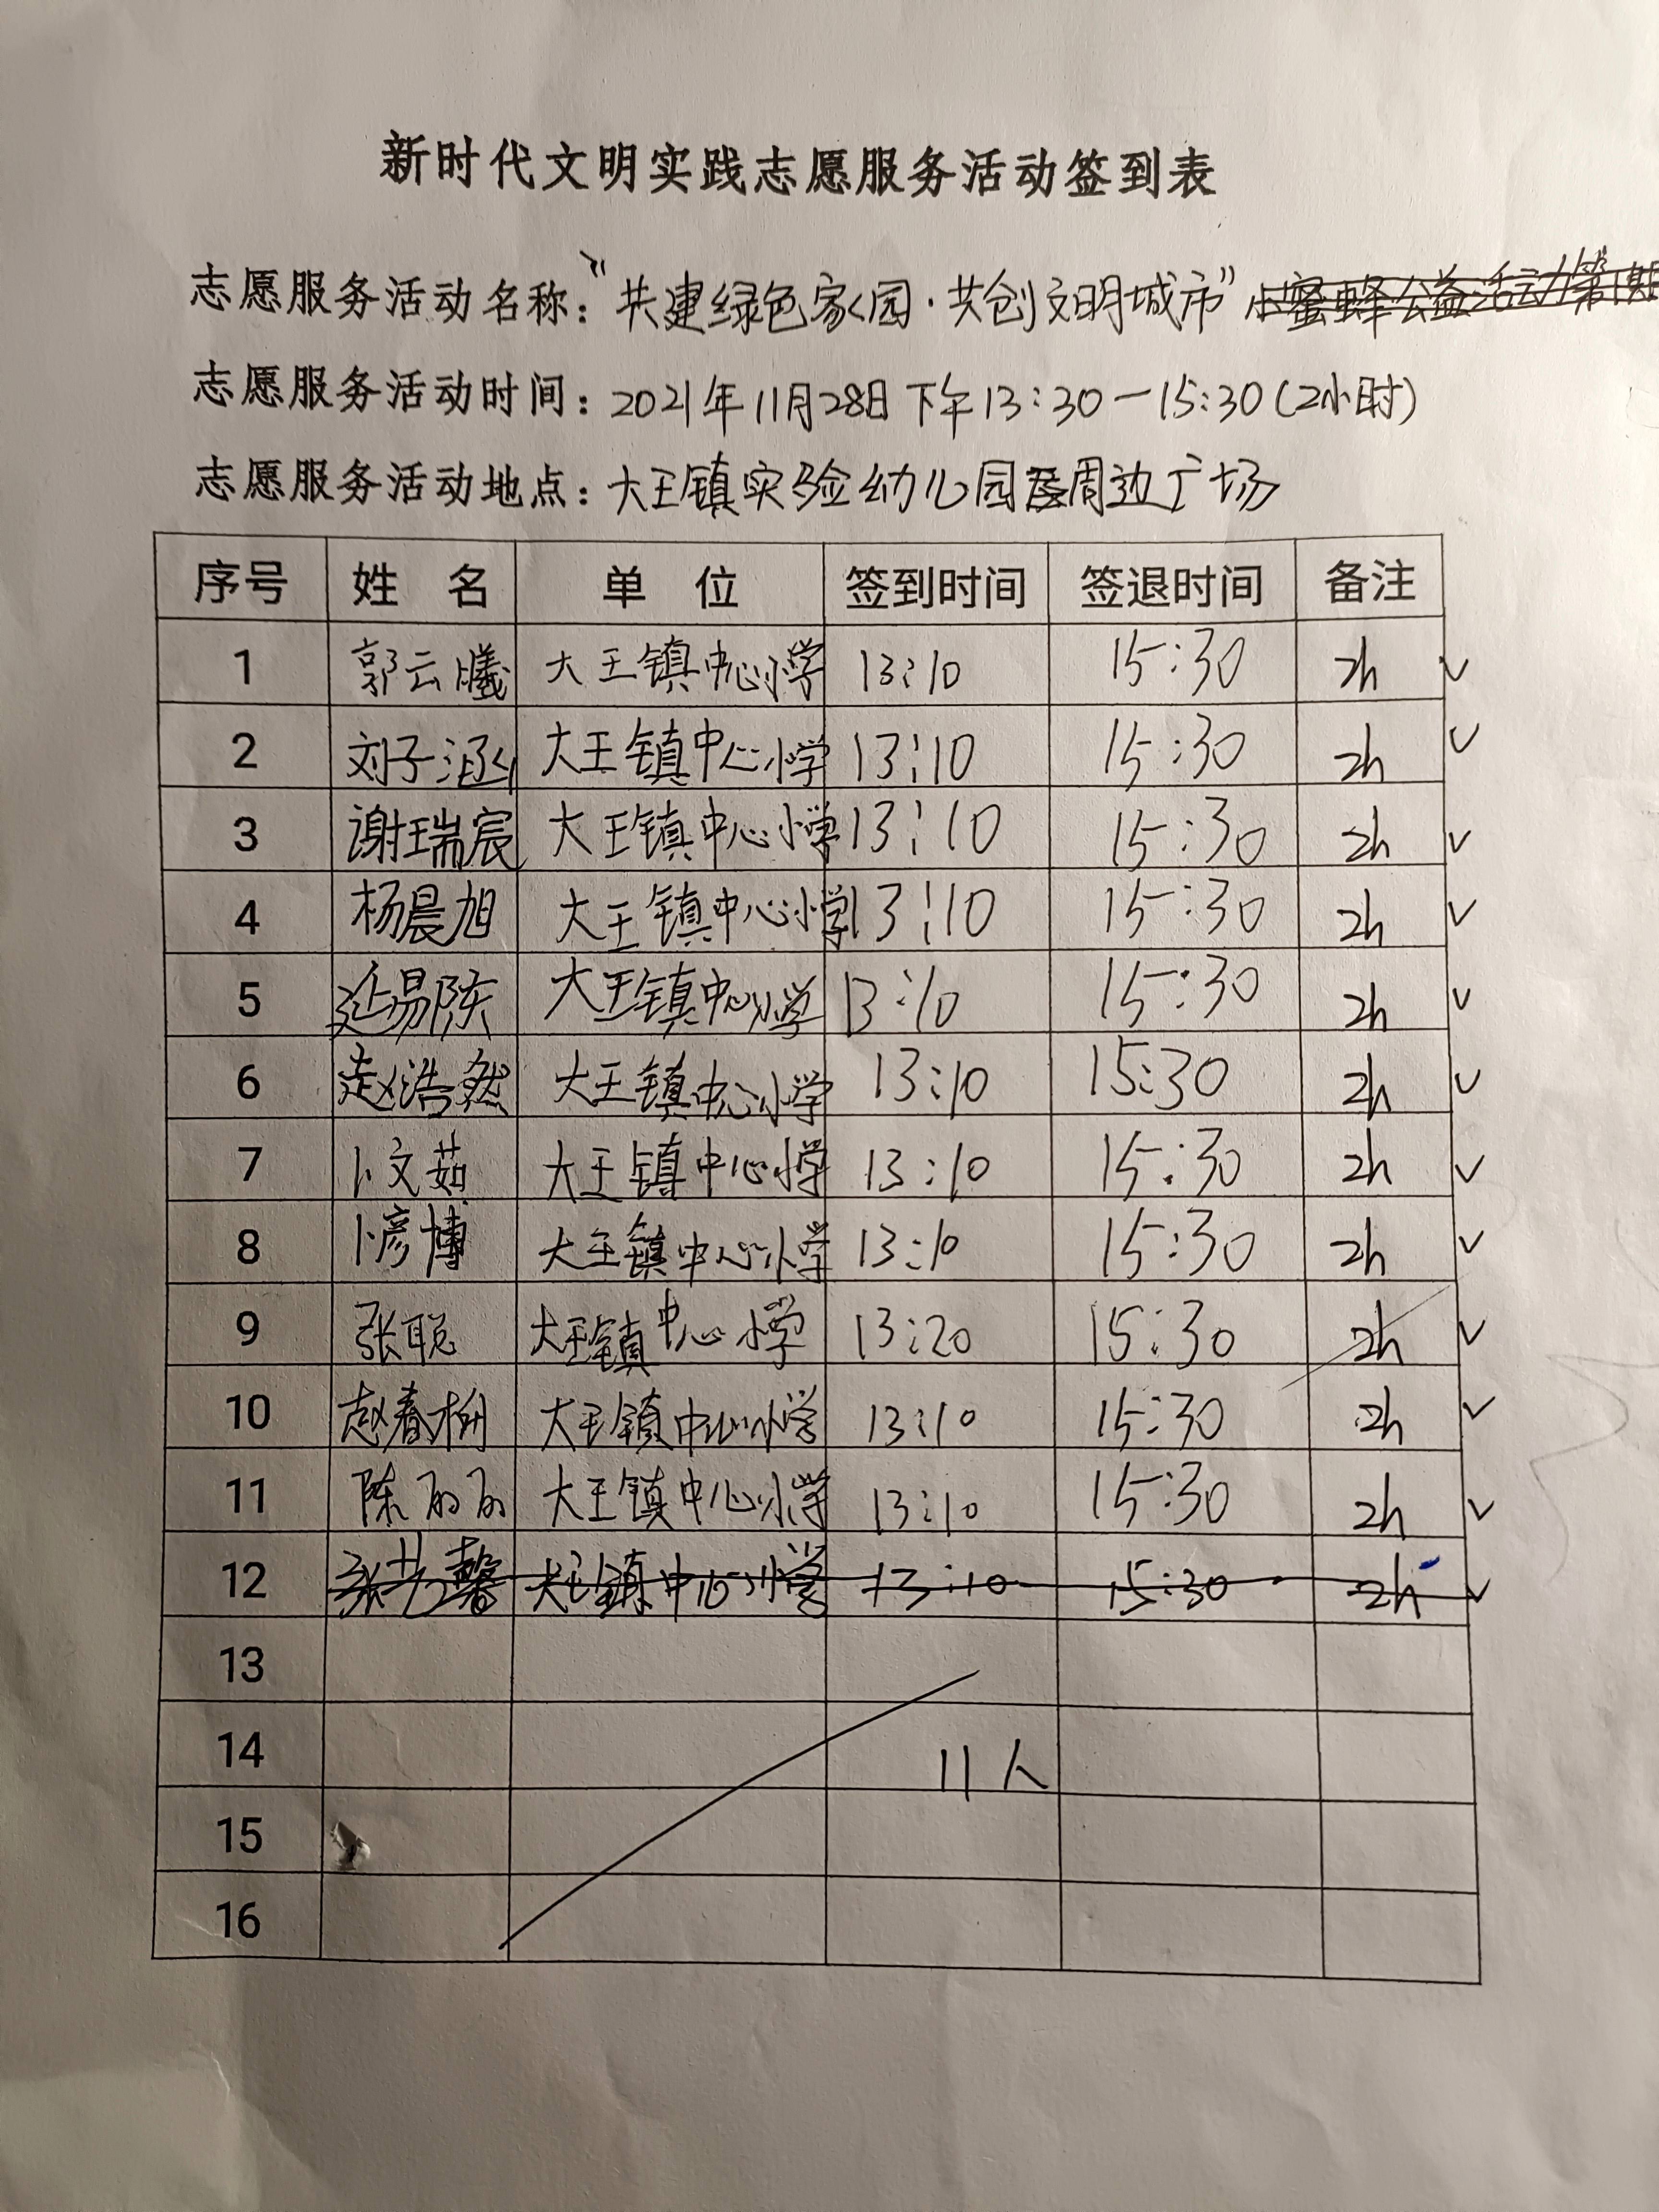 新时代文明实践志愿服务活动签到表
志愿服务活动名称："共建绿色家园·共创文明城市"小蜜蜂公益活动第1期
志愿服务活动时间：2021年11月28日下午13:30-15:30(2小时)
志愿服务活动地点：大王镇实验幼儿园及周边广场
序号 姓 名 单 位 签到时间 签退时间 备注
1 郭云曦 大王镇中心小学 13:10 15:30 2h ✓
2 刘子涵 大王镇中心小学 13:10 15:30 2h ✓
3 谢瑞宸 大王镇中心小学 13:10 15:30 2h ✓
4 杨晨旭 大王镇中心小学 13:10 15:30 2h ✓
5 延易陈 大王镇中心小学 13:10 15:30 2h ✓
6 赵浩然 大王镇中心小学 13:10 15:30 2h ✓
7 卜文茹 大王镇中心小学 13:10 15:30 2h ✓
8 卜彦博 大王镇中心小学 13:10 15:30 2h ✓
9 张聪 大王镇中心小学 13:20 15:30 2h ✓
10 赵春 大王镇中心小学 13:10 15:30 2h ✓
11 陈丽丽 大王镇中心小学 13:10 15:30 2h ✓
12 张艺馨 大王镇中心小学 13:10 15:30 2h ✓
13
14 11人
15
16